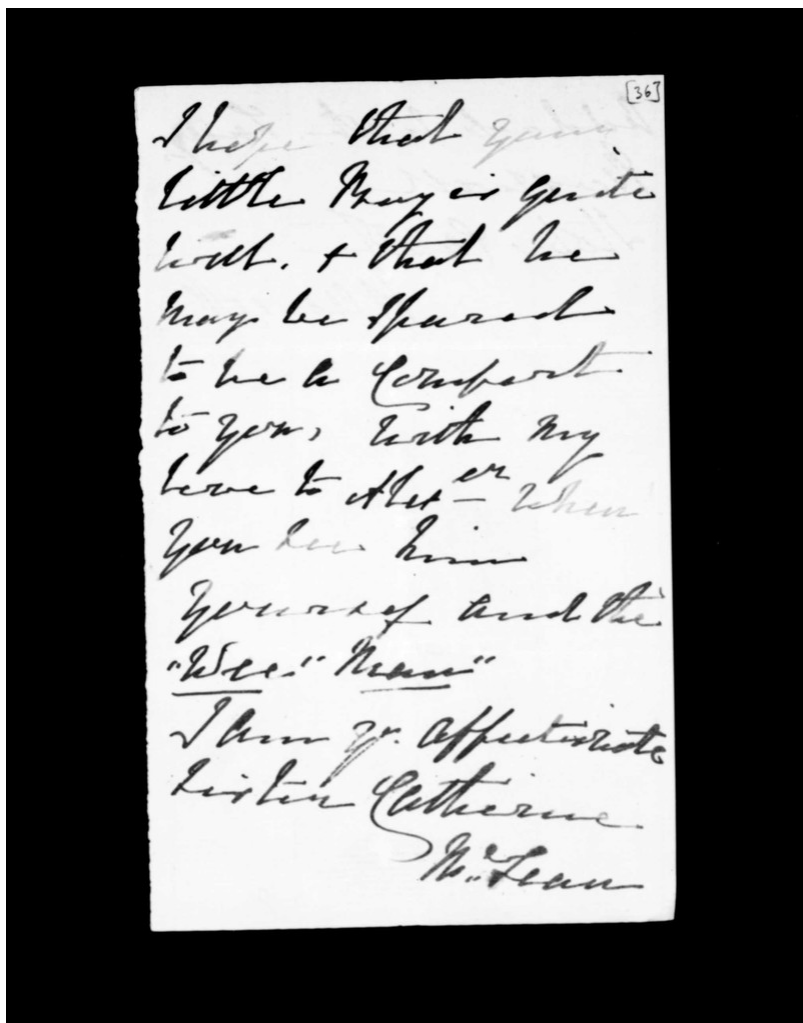 [36]
I hope that your
little Boy is quite
well. & that he
may be spared
to be a Comfort
to you, with my
love to Alex er when
you see him
yourself and the
"Wee" Man"
I am yr. affectionate
sister Catherine
McLean